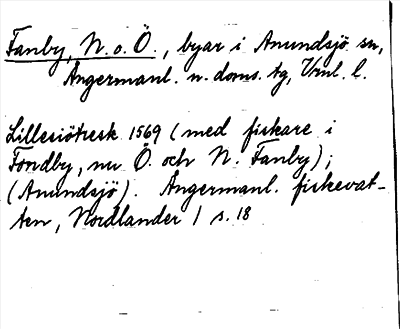 Fanby, N. o. Ö., byar i Anundsjö sn,
Ångermanl. n. doms. tg, Vnl. l.
Lillesiötresk 1569 (med fiskare i
Fondby, nu Ö. och N. Fanby);
(Anundsjö). Ångermanl. fiskevat-
ten, Nordlander 1 s. 18